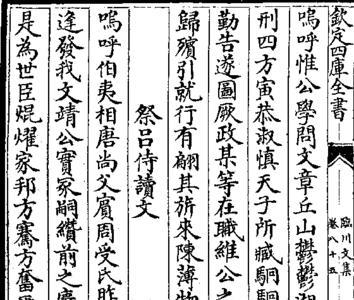 臨川文集
卷八十五
欽定四庫全書
嗚呼惟公學問文章丘山鬱鬱
刑四方寅恭淑慎天子所臧駉駉
勤告遂圖厥政某等在職維公之
歸殯引就行有翩其旂來陳薄物
祭吕侍讀文
嗚呼伯夷相唐尚父賓周受氏胙
逢發我文靖公實冢嗣纘前之
是為世臣焜燿家邦方騫方奮